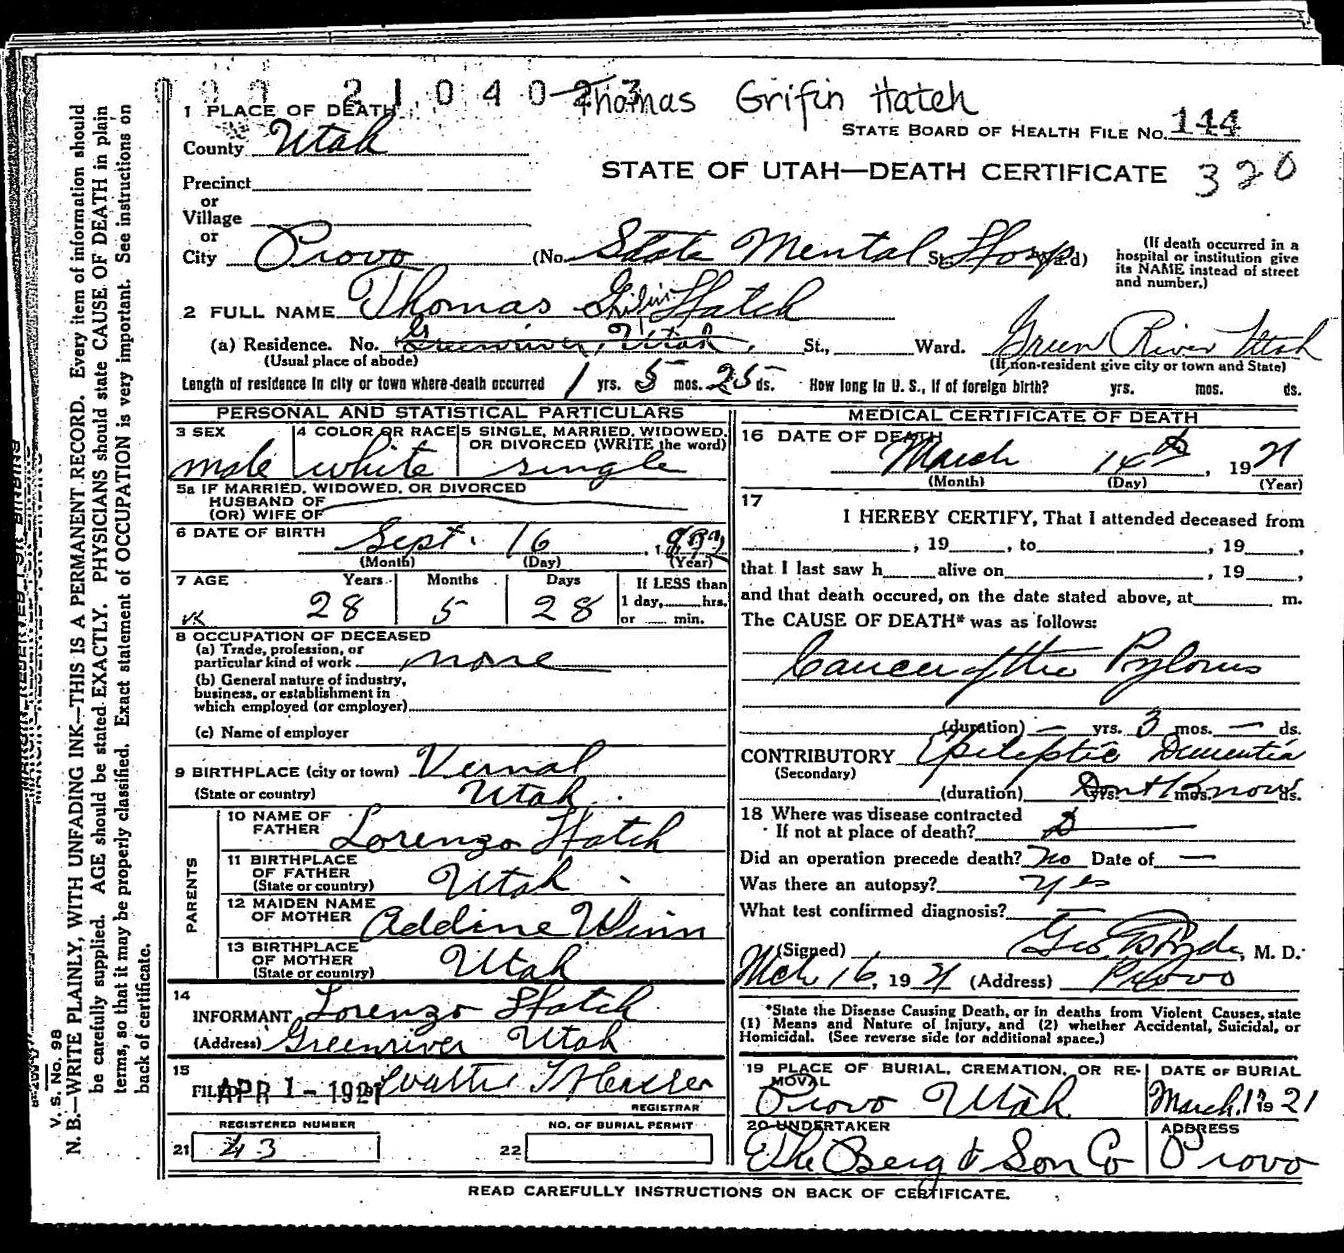 002104023 Thomas Grifin Hatch
1 PLACE OF DEATH
STATE BOARD OF HEALTH FILE No. 144
County Utah
STATE OF UTAH—DEATH CERTIFICATE 320
Precinct
or
Village
or
City Provo (No. State Mental Hosp St., Ward)
(If death occurred in a hospital or institution give its NAME instead of street and number.)
2 FULL NAME Thomas Grifin Hatch
(a) Residence. No. Greenriver, Utah, St., Ward. Green River Utah
(Usual place of abode) (If non-resident give city or town and State)
Length of residence in city or town where death occurred 1 yrs. 5 mos. 25 ds. How long in U. S., if of foreign birth? yrs. mos. ds.
PERSONAL AND STATISTICAL PARTICULARS
3 SEX 4 COLOR OR RACE 5 SINGLE, MARRIED, WIDOWED, OR DIVORCED (WRITE the word)
male white single
5a IF MARRIED, WIDOWED, OR DIVORCED
HUSBAND OF
(OR) WIFE OF
6 DATE OF BIRTH Sept. 16, 1892
(Month) (Day) (Year)
7 AGE Years Months Days If LESS than
28 5 28 1 day, hrs.
or min.
8 OCCUPATION OF DECEASED
(a) Trade, profession, or
particular kind of work none
(b) General nature of industry,
business, or establishment in
which employed (or employer)
(c) Name of employer
9 BIRTHPLACE (city or town) Vernal
(State or country) Utah
PARENTS
10 NAME OF FATHER Lorenzo Hatch
11 BIRTHPLACE OF FATHER (State or country) Utah
12 MAIDEN NAME OF MOTHER Addine Winn
13 BIRTHPLACE OF MOTHER (State or country) Utah
14
INFORMANT Lorenzo Hatch
(Address) Greenriver Utah
15
FILED APR 1 - 1921
REGISTRAR
REGISTERED NUMBER NO. OF BURIAL PERMIT
21 43 22
MEDICAL CERTIFICATE OF DEATH
16 DATE OF DEATH
March 14th, 1921
(Month) (Day) (Year)
17
I HEREBY CERTIFY, That I attended deceased from
, 19 , to , 19 ,
that I last saw h alive on , 19 ,
and that death occured, on the date stated above, at m.
The CAUSE OF DEATH* was as follows:
Cancer of the Pylorus
(duration) — yrs. 3 mos. — ds.
CONTRIBUTORY Epileptic Dementia
(Secondary)
(duration) Dont Know yrs. mos. ds.
18 Where was disease contracted
If not at place of death?
Did an operation precede death? No Date of —
Was there an autopsy? yes
What test confirmed diagnosis?
(Signed) Geo. , M. D.
Mch 16, 1921 (Address) Provo
*State the Disease Causing Death, or in deaths from Violent Causes, state
(1) Means and Nature of Injury, and (2) whether Accidental, Suicidal, or
Homicidal. (See reverse side for additional space.)
19 PLACE OF BURIAL, CREMATION, OR REMOVAL DATE OF BURIAL
Provo Utah March. 1921
20 UNDERTAKER ADDRESS
The Berg & Son Co Provo
READ CAREFULLY INSTRUCTIONS ON BACK OF CERTIFICATE.
V. S. No. 98
N. B.—WRITE PLAINLY, WITH UNFADING INK—THIS IS A PERMANENT RECORD. Every item of information should
be carefully supplied. AGE should be stated EXACTLY. PHYSICIANS should state CAUSE OF DEATH in plain
terms, so that it may be properly classified. Exact statement of OCCUPATION is very important. See instructions on
back of certificate.